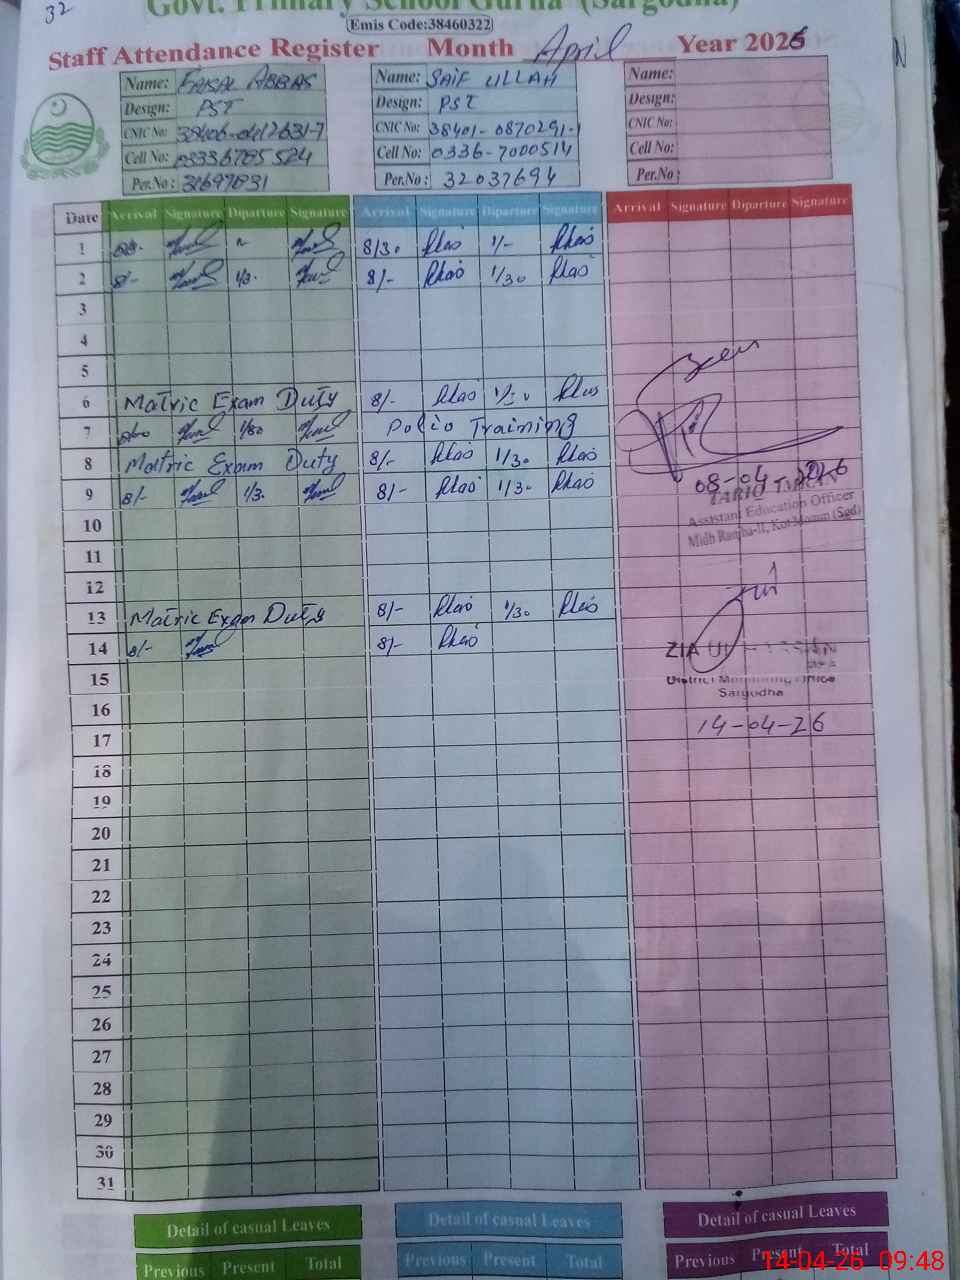 32
Govt. Primary School Gurna (Sargodha)
Emis Code:38460322
Staff Attendance Register Month April Year 2026
Name: FAISAL ABBAS Name: SAIF ULLAH Name:
Design: PST Design: PST Design:
CNIC No: CNIC No: 38401-0870291-1 CNIC No:
Cell No: 03336785524 Cell No: 0336-7000514 Cell No:
Per.No: 31697831 Per.No: 32037694 Per.No:
Date Arrival Signature Diparture Signature Arrival Signature Diparture Signature Arrival Signature Diparture Signature
1 8/30 1/-
2 8/- 1/30 8/- 1/30
3
4
5
6 Matric Exam Duty 8/- 1/30
7 1/30 Polio Training
8 Matric Exam Duty 8/- 1/30
9 8/- 1/30 8/- 1/30
08-04-2026
Assistant Education Officer
Midh Ranjha-II, Kot Momin (Sgd)
10
11
12
13 Matric Exam Duty 8/- 1/30
14 8/- 8/-
ZIA UL HASSAN
District Monitoring Officer
Sargodha
14-04-26
15
16
17
18
19
20
21
22
23
24
25
26
27
28
29
30
31
Detail of casual Leaves Detail of casual Leaves Detail of casual Leaves
Previous Present Total Previous Present Total Previous Present Total
14-04-26 09:48